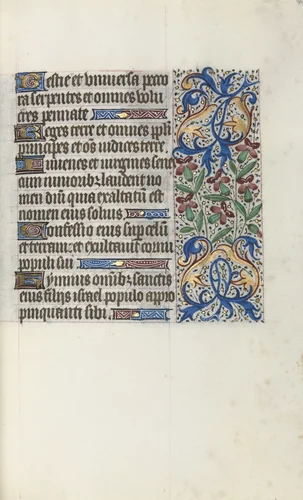 Bestie et vniuersa peco
ra serpentes et omnes volu
cres pennate
Reges terre et omnes ppli
principes et oēs iudices terre.
Iuuenes et virgines sene
cum iunioribz laudent no
men dn̄i quia exaltatū est
nomen eius solius
Confessio eius sup celū
et terram et exaltauit cornu
populi sui
Hymnus omībz sanctis
eius filijs israel populo appro
pinquanti sibi.